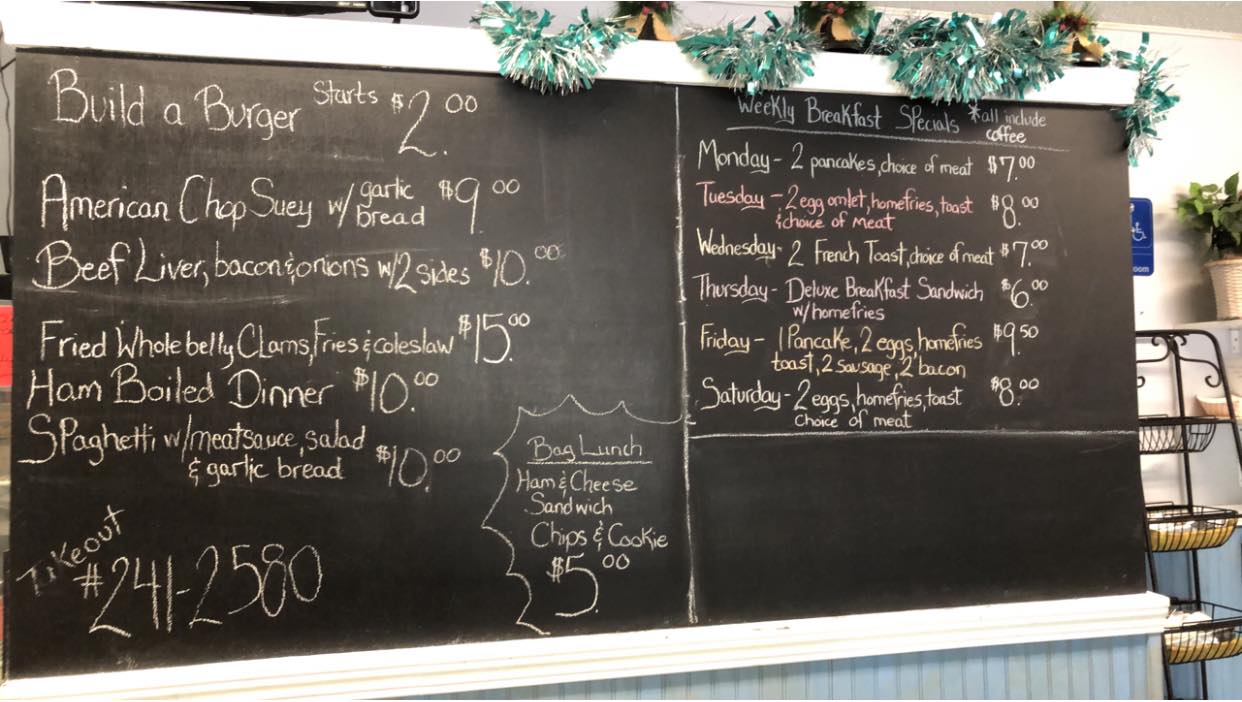 Build a Burger Starts $2.00
American Chop Suey w/ garlic bread $9.00
Beef Liver, bacon & onions w/2 sides $10.00
Fried Whole belly Clams, Fries & coleslaw $15.00
Ham Boiled Dinner $10.00
Spaghetti w/meatsauce, salad
& garlic bread $10.00
Takeout
#241-2580
Bag Lunch
Ham & Cheese
Sandwich
Chips & Cookie
$5.00
Weekly Breakfast Specials *all include
coffee
Monday - 2 pancakes, choice of meat $7.00
Tuesday - 2 egg omlet, homefries, toast $8.00
& choice of meat
Wednesday - 2 French Toast, choice of meat $7.00
Thursday - Deluxe Breakfast Sandwich $6.00
w/homefries
Friday - 1 Pancake, 2 eggs, homefries $9.50
toast, 2 sausage, 2 bacon
Saturday - 2 eggs, homefries, toast $8.00
choice of meat
oom